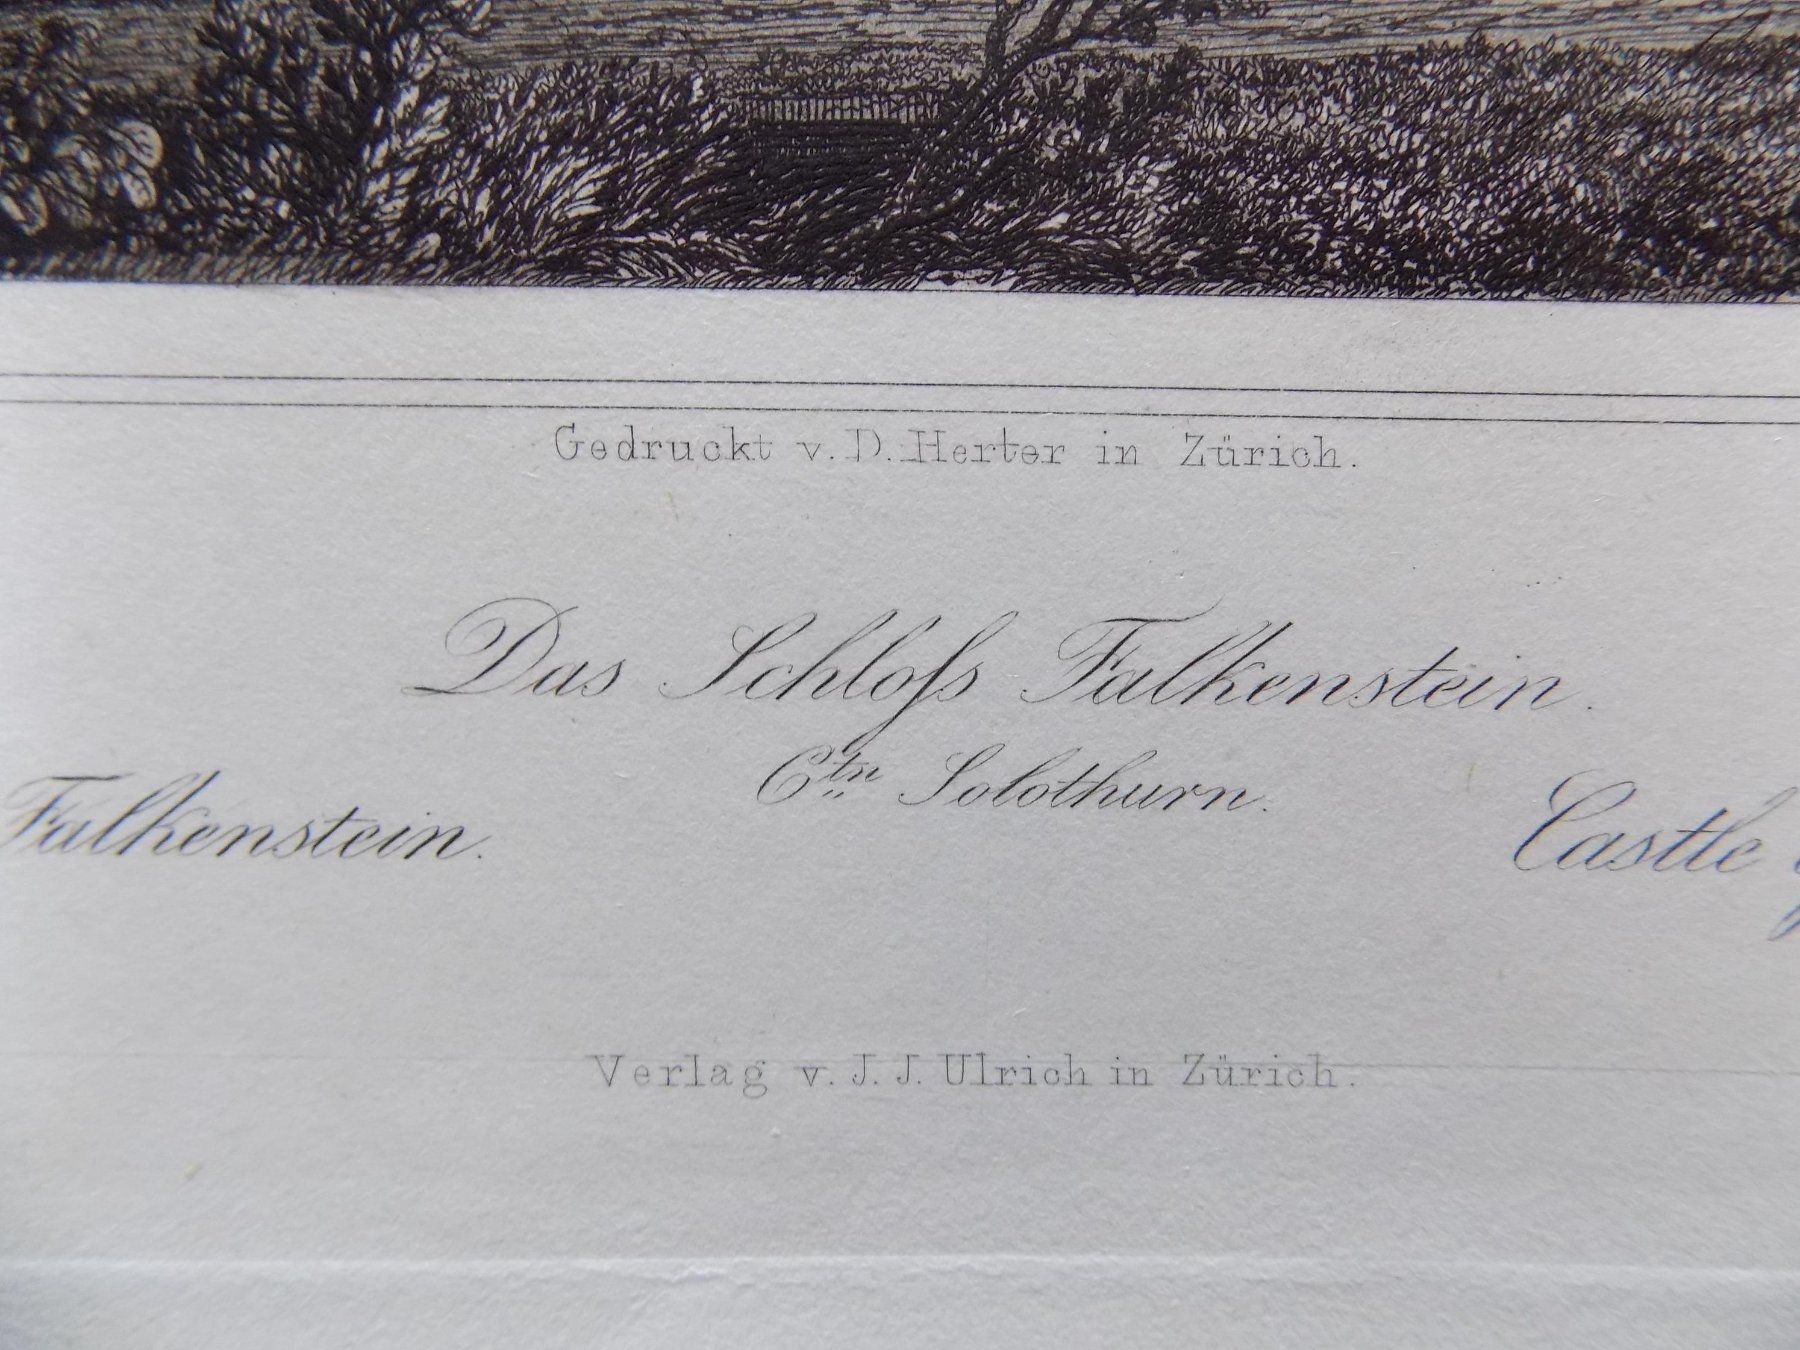 Gedruckt v. D. Herter in Zürich.
Das Schloſs Falkenstein.
Ctn Solothurn.
Falkenstein.
Castle
Verlag v. J. J. Ulrich in Zürich.